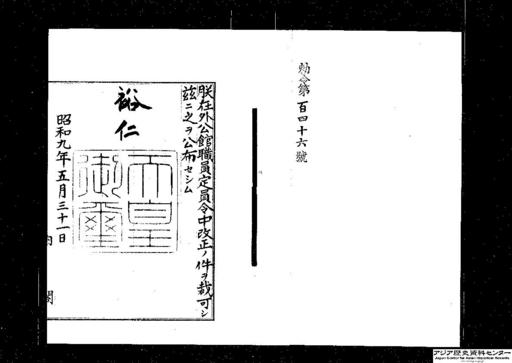 勅令第百四十六號
朕在外公館職員定員令中改正ノ件ヲ裁可シ
茲ニ之ヲ公布セシム
裕仁
天皇
御璽
昭和九年五月三十一日
内閣
アジア歴史資料センター
Japan Center for Asian Historical Records